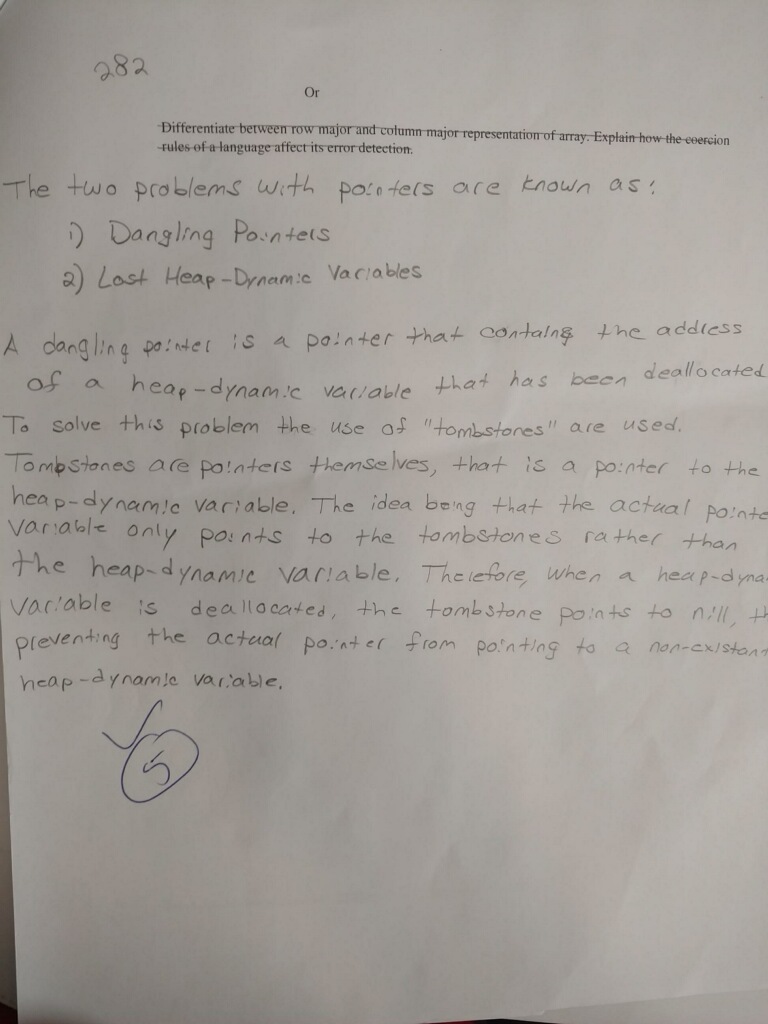 282
Or
Differentiate between row major and column major representation of array. Explain how the coercion
rules of a language affect its error detection.
The two problems with pointers are known as:
1) Dangling Pointers
2) Lost Heap-Dynamic Variables
A dangling pointer is a pointer that contains the address
of a heap-dynamic variable that has been deallocated
To solve this problem the use of "tombstones" are used.
Tombstones are pointers themselves, that is a pointer to the
heap-dynamic variable. The idea being that the actual pointe
variable only points to the tombstones rather than
the heap-dynamic variable. Therefore, when a heap-dyna
variable is deallocated, the tombstone points to nill, th
preventing the actual pointer from pointing to a non-existant
heap-dynamic variable.
5